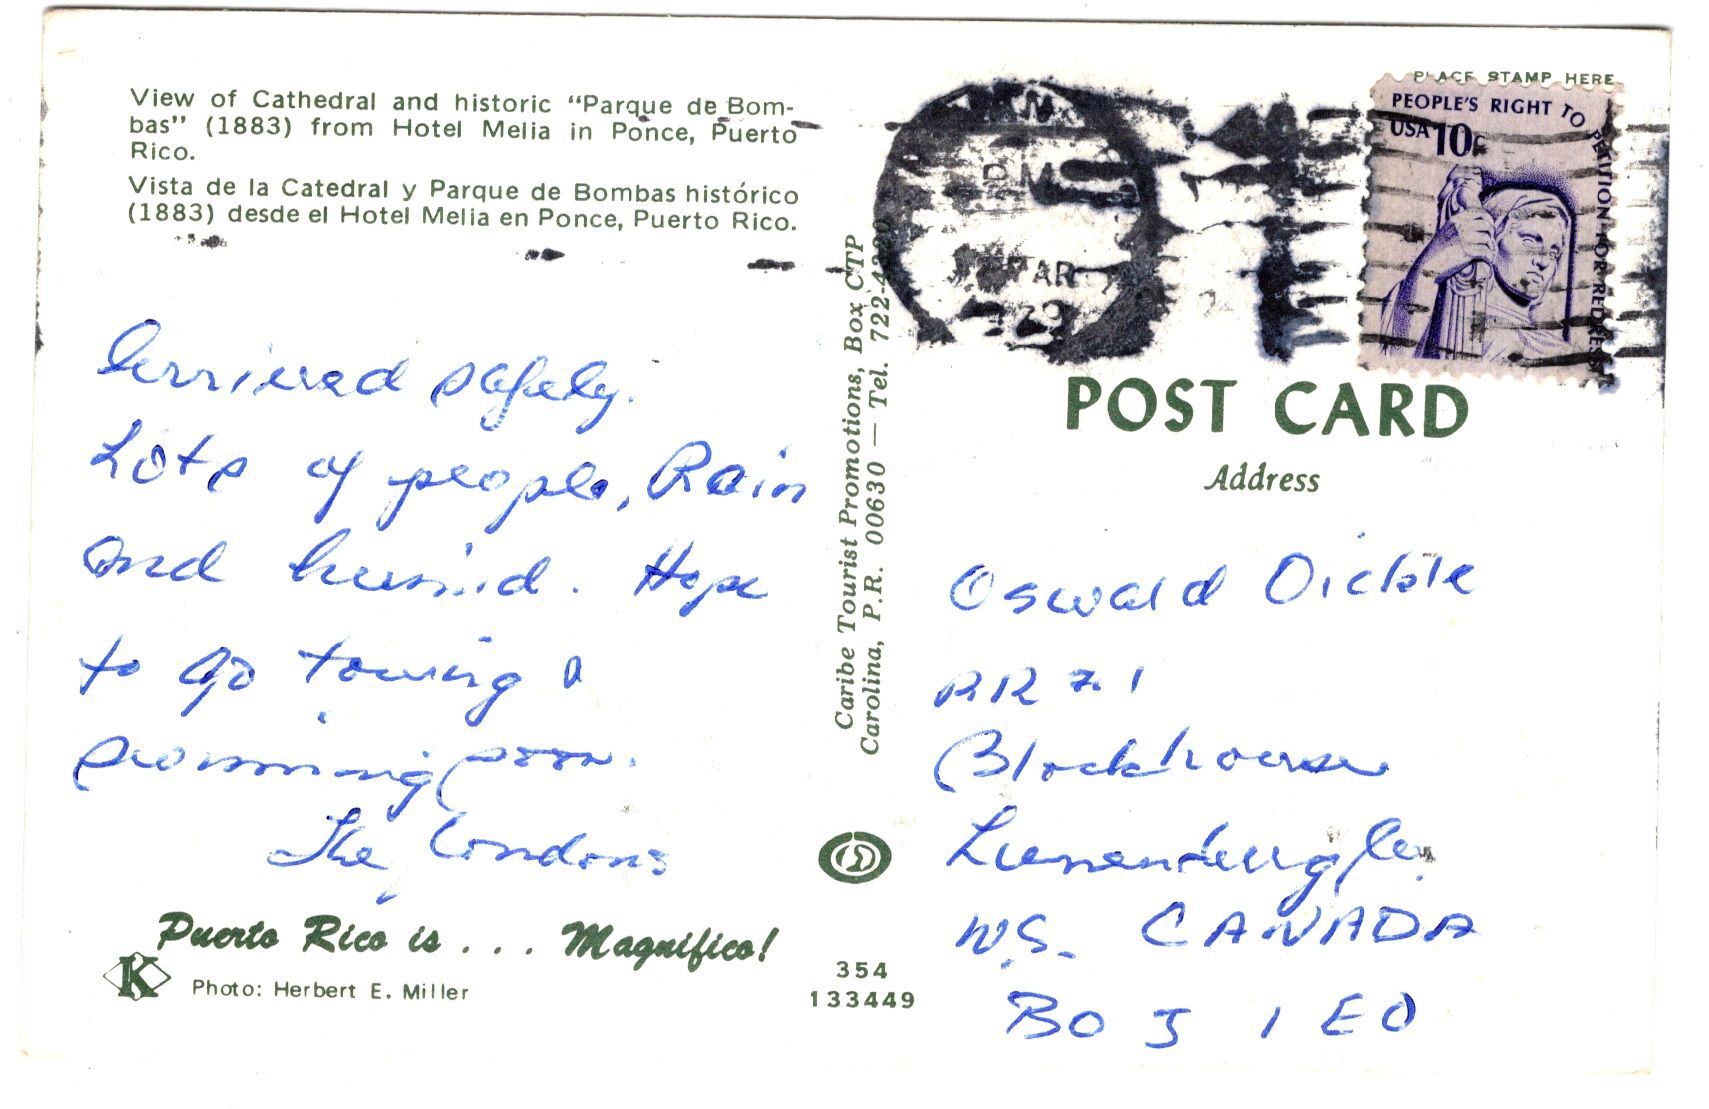 View of Cathedral and historic “Parque de Bom-
bas” (1883) from Hotel Melia in Ponce, Puerto
Rico.
Vista de la Catedral y Parque de Bombas histórico
(1883) desde el Hotel Melia en Ponce, Puerto Rico.
Arrieved safely.
Lots of people, Rain
and humid. Hope
to go touring &
swimming soon.
The Condons
Puerto Rico is . . . Magnifico!
K
Photo: Herbert E. Miller
Caribe Tourist Promotions, Box CTP
Carolina, P.R. 00630 — Tel.
354
133449
PLACE STAMP HERE
PEOPLE'S RIGHT TO PETITION FOR REDRESS
USA 10c
PM
POST CARD
Address
Oswald
RR # 1
Blockhouse
Lunenburg Co.
N.S. CANADA
B0J 1E0